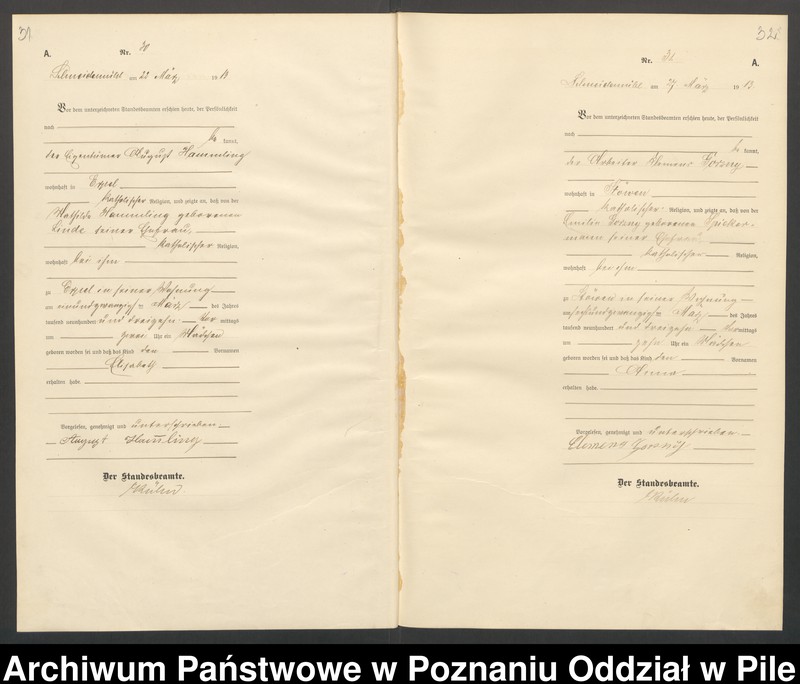 A.
Nr. 30
Schneidemühl am 22 März 1913
Vor dem unterzeichneten Standesbeamten erschien heute, der Persönlichkeit
nach
be kannt,
der Eigentümer August Hammling
wohnhaft in Expel
katholischer Religion, und zeigte an, daß von der
Mathilde Hammling geborenen
Linde seiner Ehefrau,
katholischer Religion,
wohnhaft bei ihm
zu Expel in seiner Wohnung
am März des Jahres
tausend neunhundert und dreizehn vor mittags
um Uhr ein Mädchen
geboren worden sei und daß das Kind den Vornamen
Elisabeth
erhalten habe.
Vorgelesen, genehmigt und unterschrieben
August
Der Standesbeamte.
Nr. 31
A.
Schneidemühl am 27 März 1913.
Vor dem unterzeichneten Standesbeamten erschien heute, der Persönlichkeit
nach
be kannt,
der Arbeiter Klemens Gorzny
wohnhaft in Stöwen
katholischer Religion, und zeigte an, daß von der
Emilie Gorzny geborenen
seiner Ehefrau
katholischer Religion,
wohnhaft bei ihm
zu Stöwen in seiner Wohnung
am sechsundzwanzigsten März des Jahres
tausend neunhundert und dreizehn vormittags
um zehn Uhr ein Mädchen
geboren worden sei und daß das Kind den Vornamen
Anna
erhalten habe.
Vorgelesen, genehmigt und unterschrieben
Der Standesbeamte.
Archiwum Państwowe w Poznaniu Oddział w Pile